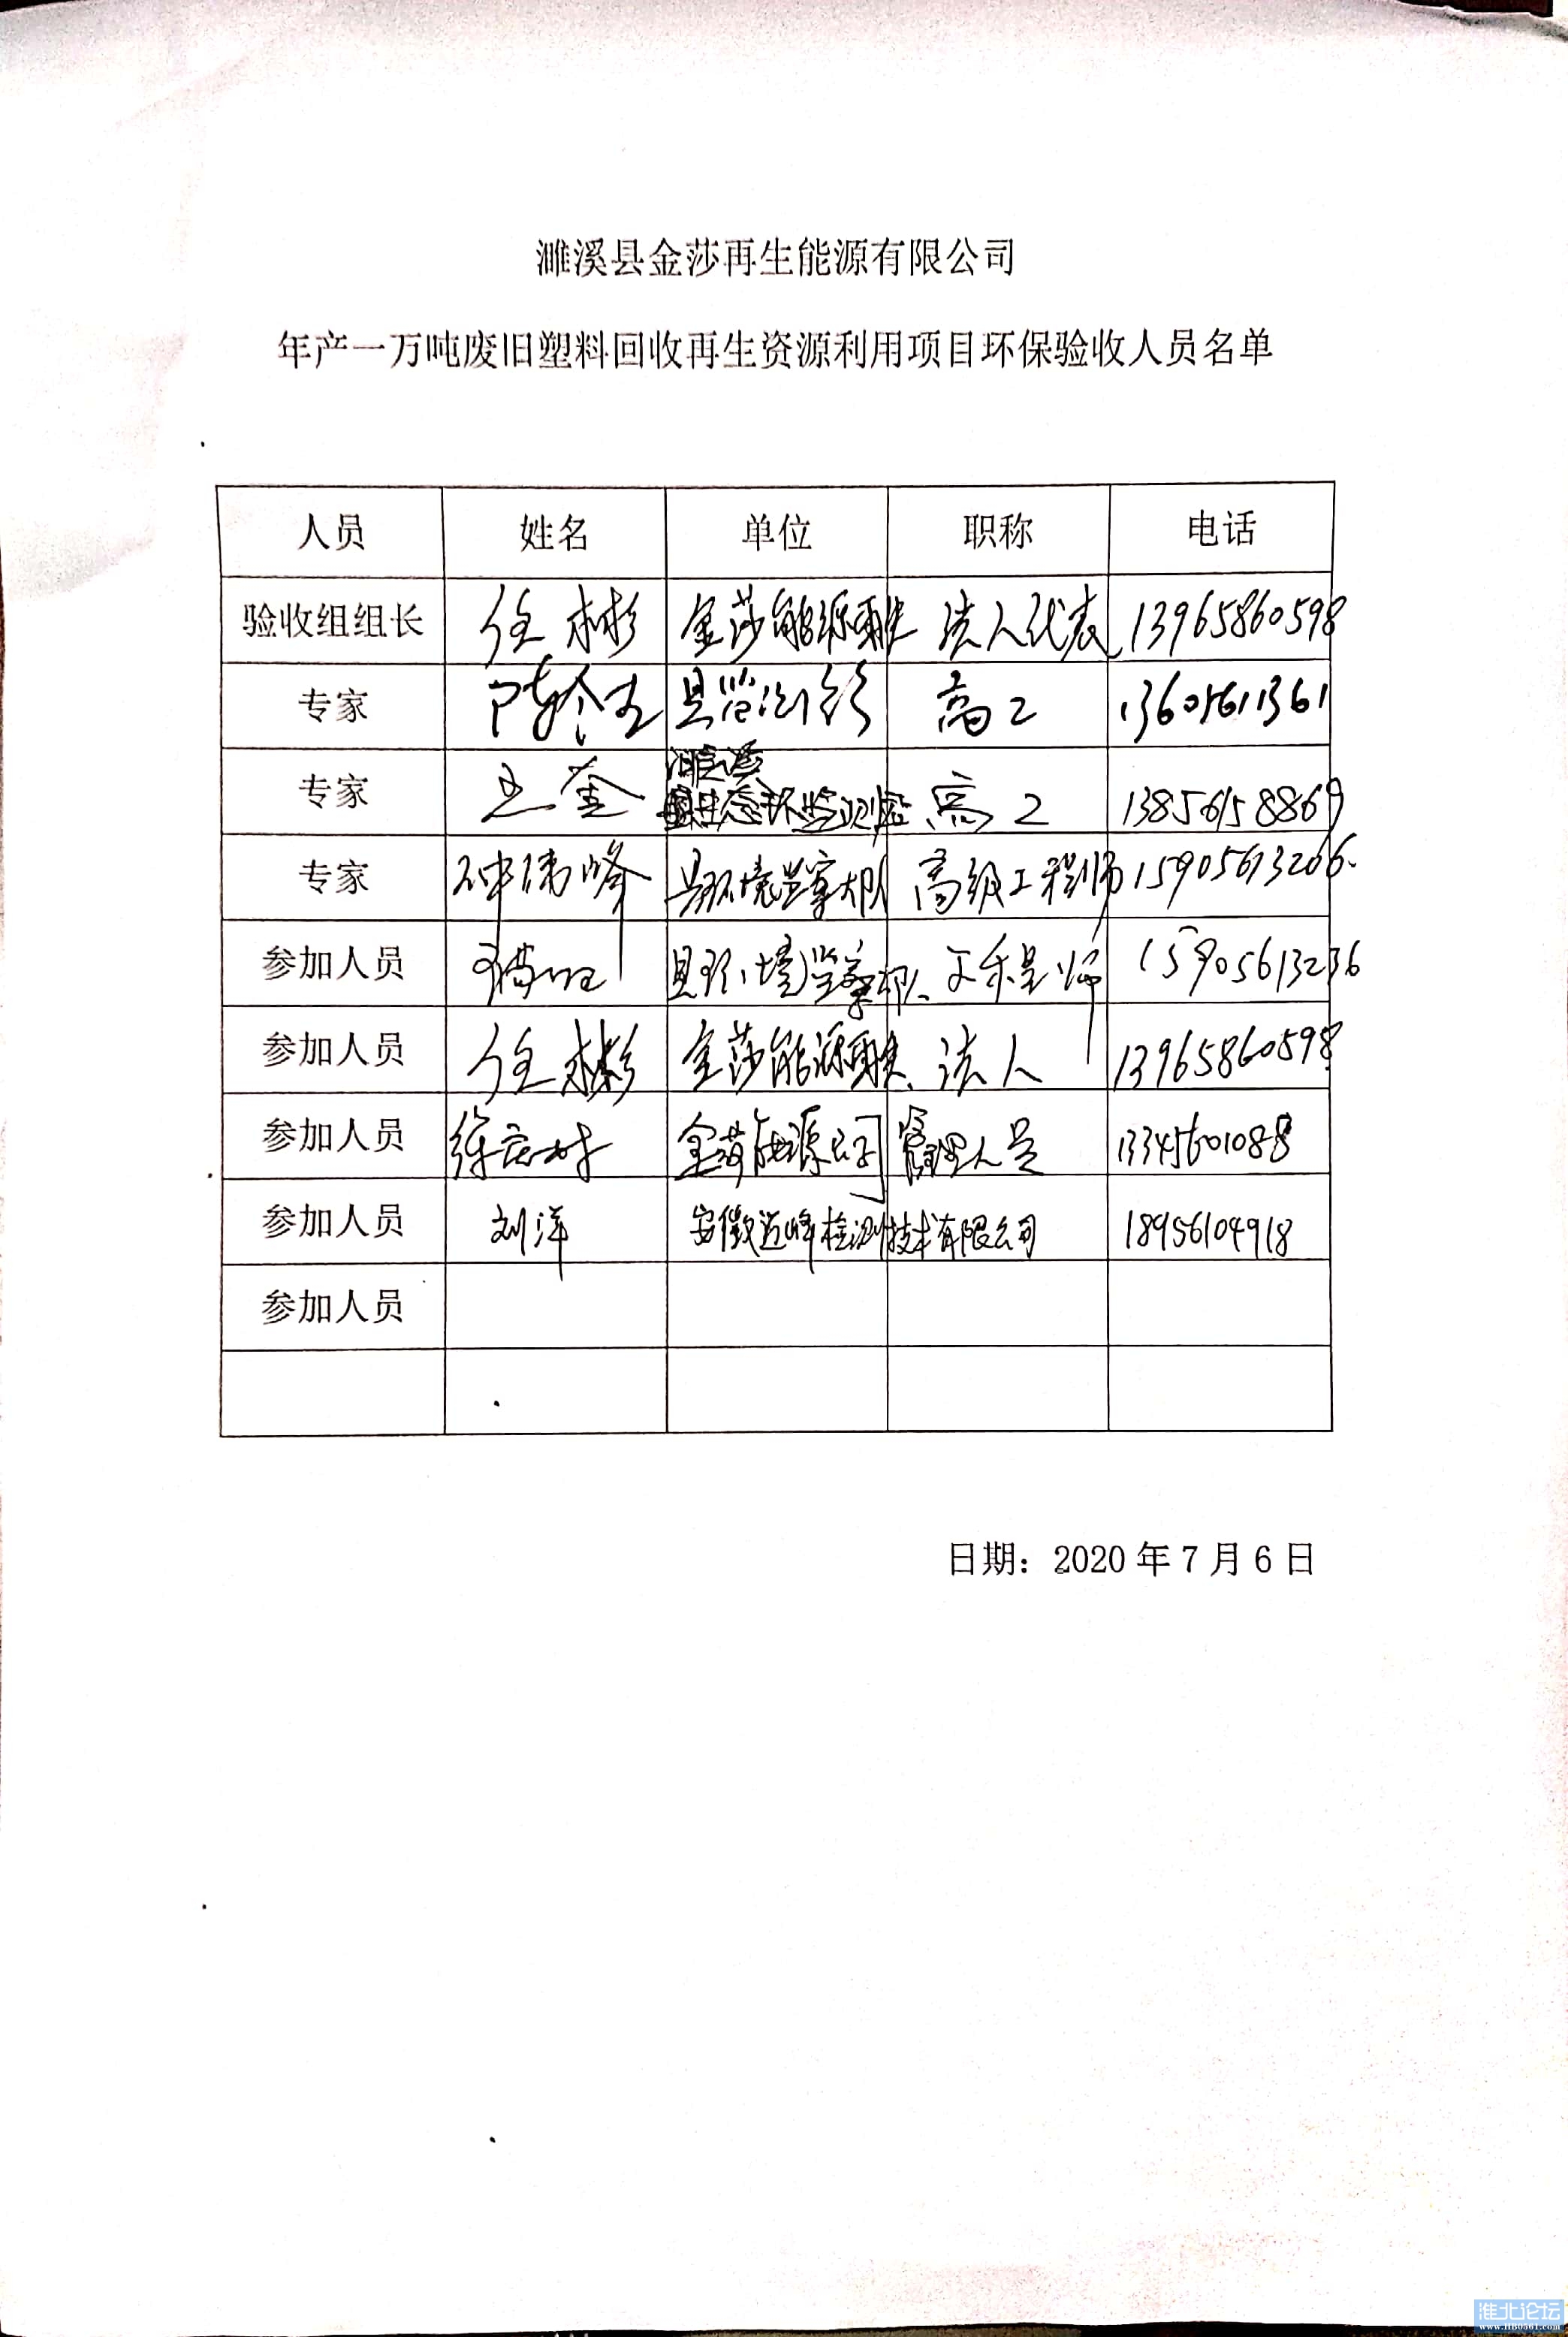 濉溪县金莎再生能源有限公司
年产一万吨废旧塑料回收再生资源利用项目环保验收人员名单
人员 姓名 单位 职称 电话
验收组组长 任彬 金莎能源 法人代表 13965860598
专家 县监测 高工 13605611361
专家 王奎 生态环监测站 高工 13856158869
专家 钟伟峰 县环境监察大队 高级工程师 15905613266
参加人员 县环境监察大队 工程师 15905613236
参加人员 任彬 金莎能源 法人 13965860598
参加人员 徐 金莎能源公司 管理人员 13345601088
参加人员 刘洋 安徽迈峰检测技术有限公司 18956104918
参加人员
日期：2020 年 7 月 6 日
淮北论坛
www.HB0561.com